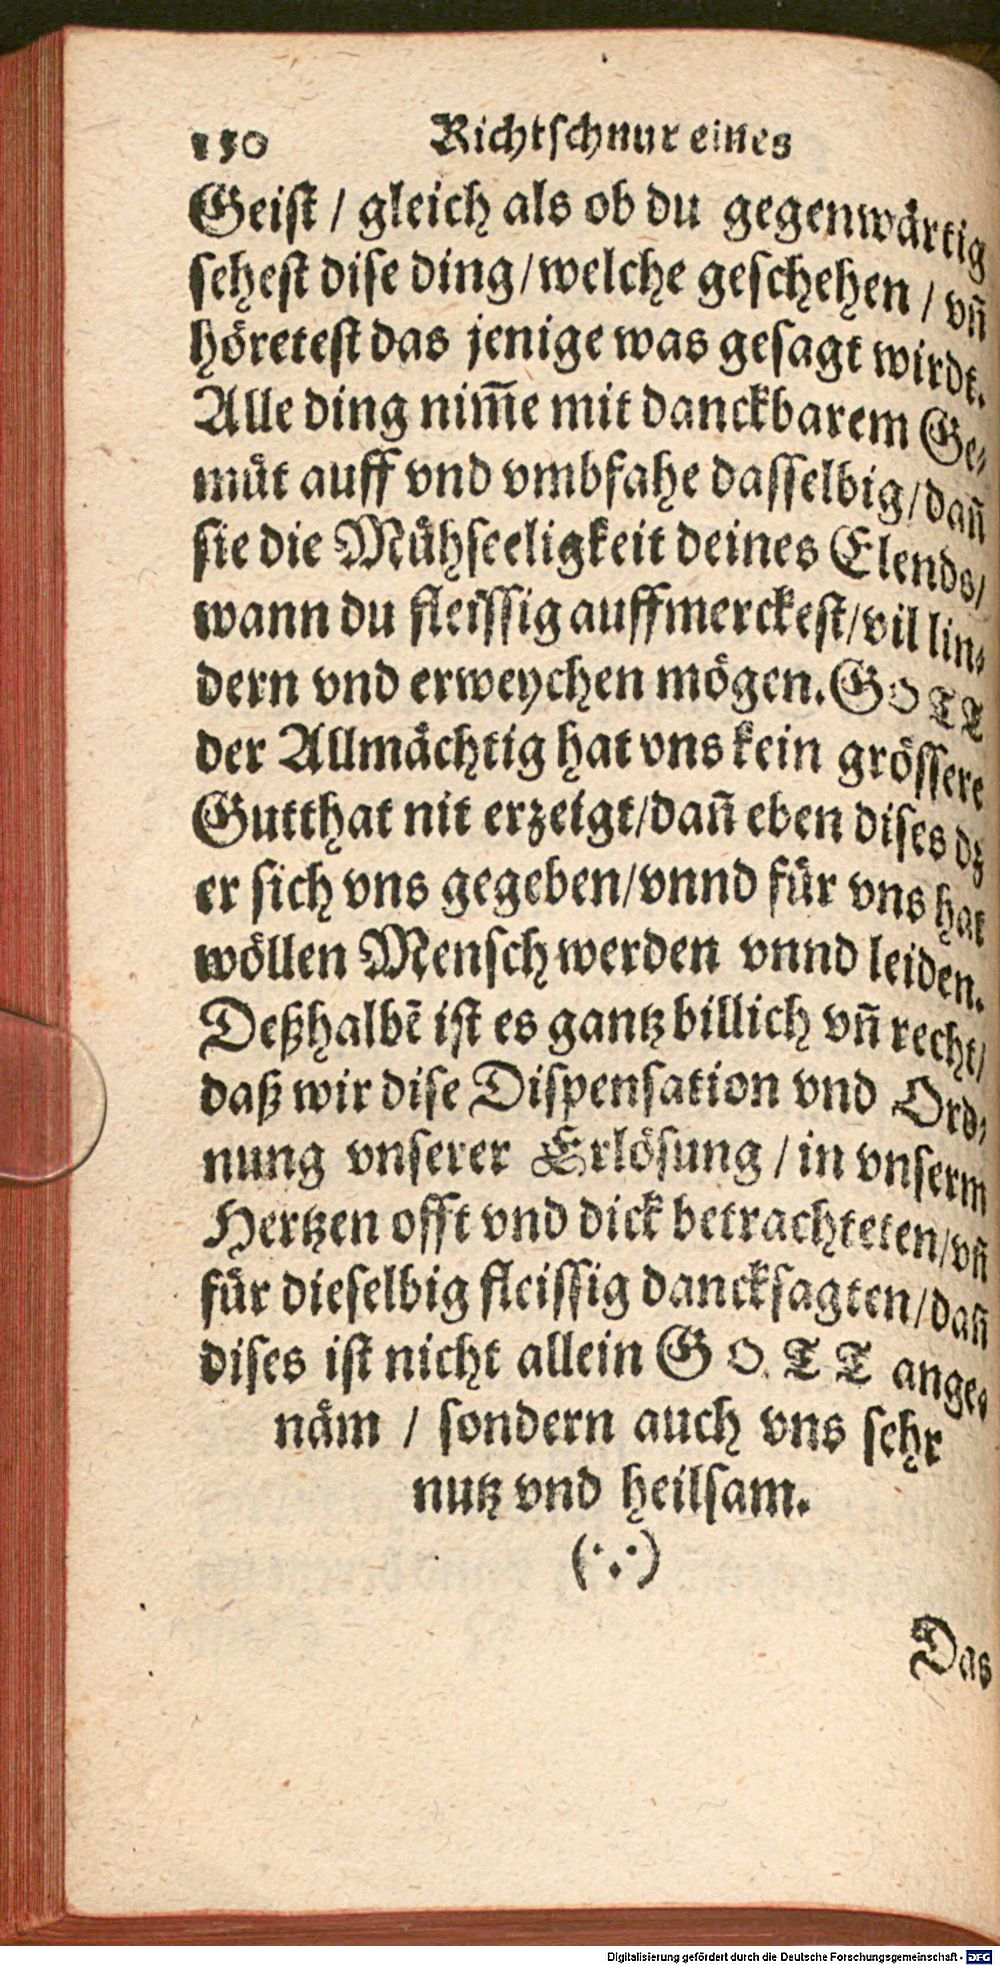 150 Richtschnur eines
Geist / gleich als ob du gegenwärtig
sehest dise ding/welche geschehen / vn̄
höretest das jenige was gesagt wirdt.
Alle ding nim̄e mit danckbarem Ge-
müt auff vnd vmbfahe dasselbig/dan̄
sie die Mühseeligkeit deines Elends/
wann du fleissig auffmerckest/vil lin-
dern vnd erweychen mögen. GOTT
der Allmächtig hat vns kein grössere
Gutthat nit erzeigt/dan̄ eben dises dz
er sich vns gegeben/vnnd für vns hat
wöllen Mensch werden vnnd leiden.
Deßhalbē ist es gantz billich vn̄ recht/
daß wir dise Dispensation vnd Ord-
nung vnserer Erlösung / in vnserm
Hertzen offt vnd dick betrachteten/vn̄
für dieselbig fleissig dancksagten/dan̄
dises ist nicht allein GOTT ange-
näm / sondern auch vns sehr
nutz vnd heilsam.
(∵)
Das
Digitalisierung gefördert durch die Deutsche Forschungsgemeinschaft - DFG